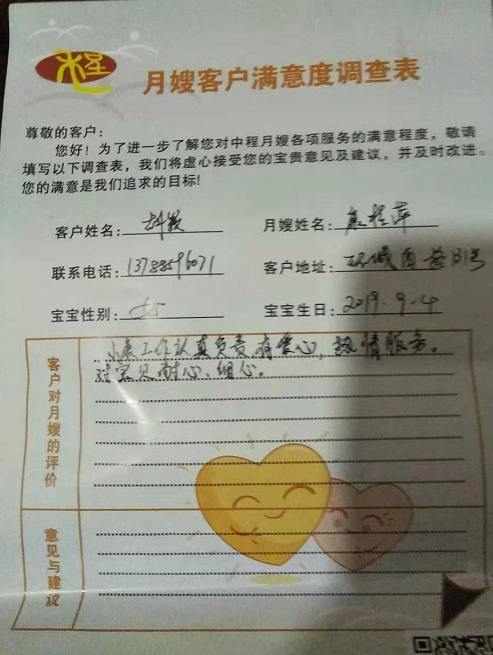 月嫂客户满意度调查表
尊敬的客户：
您好！为了进一步了解您对中程月嫂各项服务的满意程度，敬请
填写以下调查表，我们将虚心接受您的宝贵意见及建议，并及时改进。
您的满意是我们追求的目标!
客户姓名： 月嫂姓名：
联系电话：13788596071 客户地址：环城西路
宝宝性别：女 宝宝生日：2019.9.4
客户对月嫂的评价
小康工作认真负责有爱心，热情服务。
对宝贝耐心、细心。
意见与建议